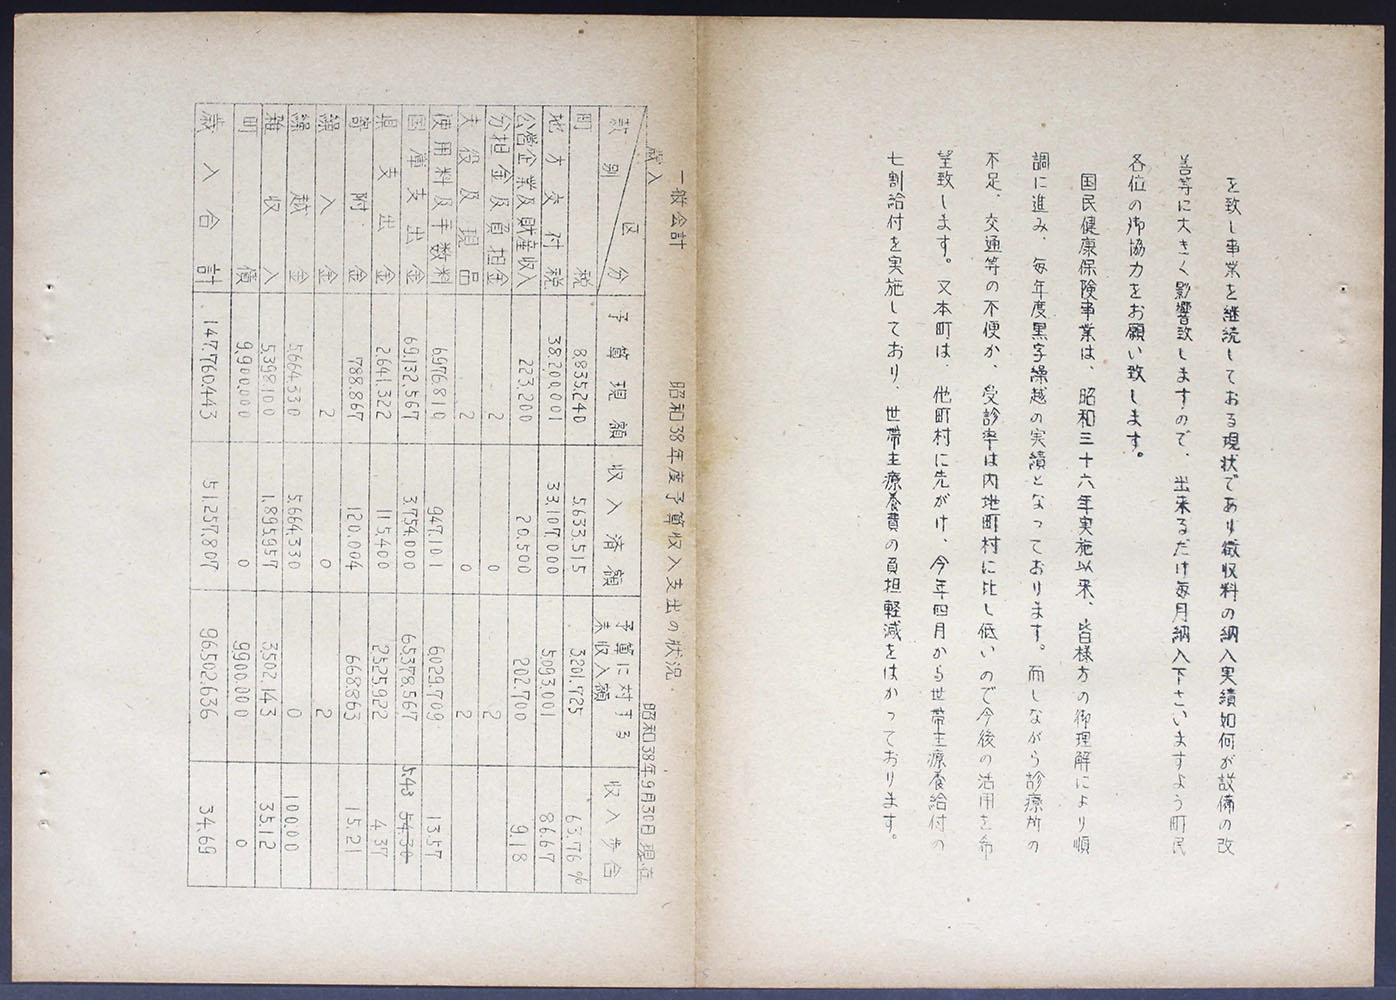 を致し事業を継続しておる現状であり徴収料の納入実績如何が設備の改
善等に大きく影響致しますので、出来るだけ毎月納入下さいますよう町民
各位の御協力をお願い致します。
国民健康保険事業は、昭和三十六年実施以来、皆様方の御理解により順
調に進み、毎年度黒字繰越の実績となっております。而しながら診療所の
不足、交通等の不便か、受診率は内地町村に比し低いので今後の活用を希
望致します。又本町は、他町村に先がけ、今年四月から世帯主療養給付の
七割給付を実施しており、世帯主療養費の負担軽減をはかっております。
昭和38年度予算収入支出の状況.
一般会計
歳入 昭和38年9月30日現在
款別 区分 予算現額 収入済額 予算に対する未収入額 収入歩合
町税 8,835,240 5,633,515 3,201,725 63.76%
地方交付税 38,200,001 33,107,000 5,093,001 86.67
公営企業及財産収入 223,200 20,500 202,700 9.18
分担金及負担金 2 0 2
夫役及現品 2 0 2
使用料及手数料 6,976,810 947,101 6,029,709 13.57
国庫支出金 69,132,567 3,754,000 65,378,567 5.43 54.30
県支出金 2,641,322 115,400 2,525,922 4.37
寄附金 788,867 120,004 668,863 15.21
繰入金 2 0 2
繰越金 5,664,330 5,664,330 0 100.00
雑収入 5,398,100 1,895,957 3,502,143 35.12
町債 9,900,000 0 9,900,000 0
歳入合計 147,760,443 51,257,807 96,502,636 34.69